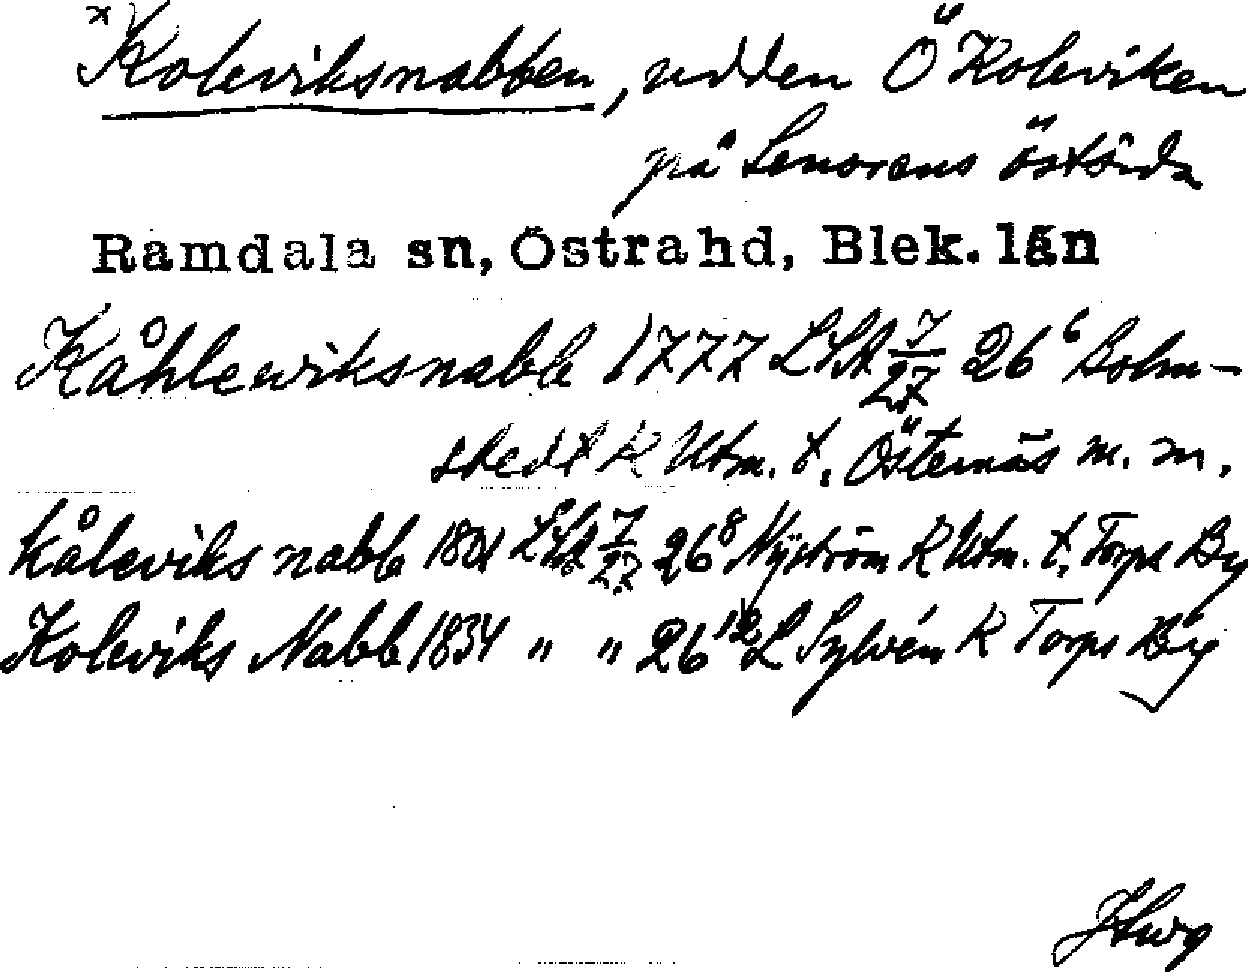 x Koleviksnabben, udden Ö Koleviken
på Senorens östsida
Ramdala sn, Östra hd, Blek. län
Kåhlewiksnabb 1777 LSA 7/27 26⁶ Bolm-
stedt K Utm. t. Östernäs m. m.
kåleviks nabb 1801 LSA 7/27 26⁸ Nyström K Utm. t. Torps By
Koleviks Nabb 1834 " " 26¹² L Sylvén K Torps By